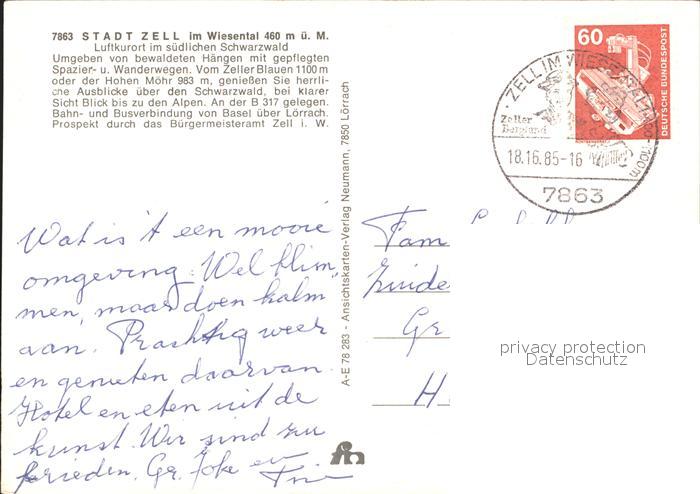 7863 STADT ZELL im Wiesental 460 m ü. M.
Luftkurort im südlichen Schwarzwald
Umgeben von bewaldeten Hängen mit gepflegten
Spazier- u. Wanderwegen. Vom Zeller Blauen 1100 m
oder der Hohen Möhr 983 m, genießen Sie herrli-
che Ausblicke über den Schwarzwald, bei klarer
Sicht Blick bis zu den Alpen. An der B 317 gelegen.
Bahn- und Busverbindung von Basel über Lörrach.
Prospekt durch das Bürgermeisteramt Zell i. W.
Wat is 't een mooie
omgeving. Wel klim,
men, maar doen kalm
aan. Prachtig weer
en genieten daarvan.
Hotel en eten uit de
kunst. Wir sind zu
frieden. Gr. Joke en
A-E 78 283 - Ansichtskarten-Verlag Neumann, 7850 Lörrach
60
DEUTSCHE BUNDESPOST
ZELL IM WIESENTAL
Zeller
Bergland
-1100m
18.16.85-16
7863
Fam
Zuide
Gr
H
privacy protection
Datenschutz